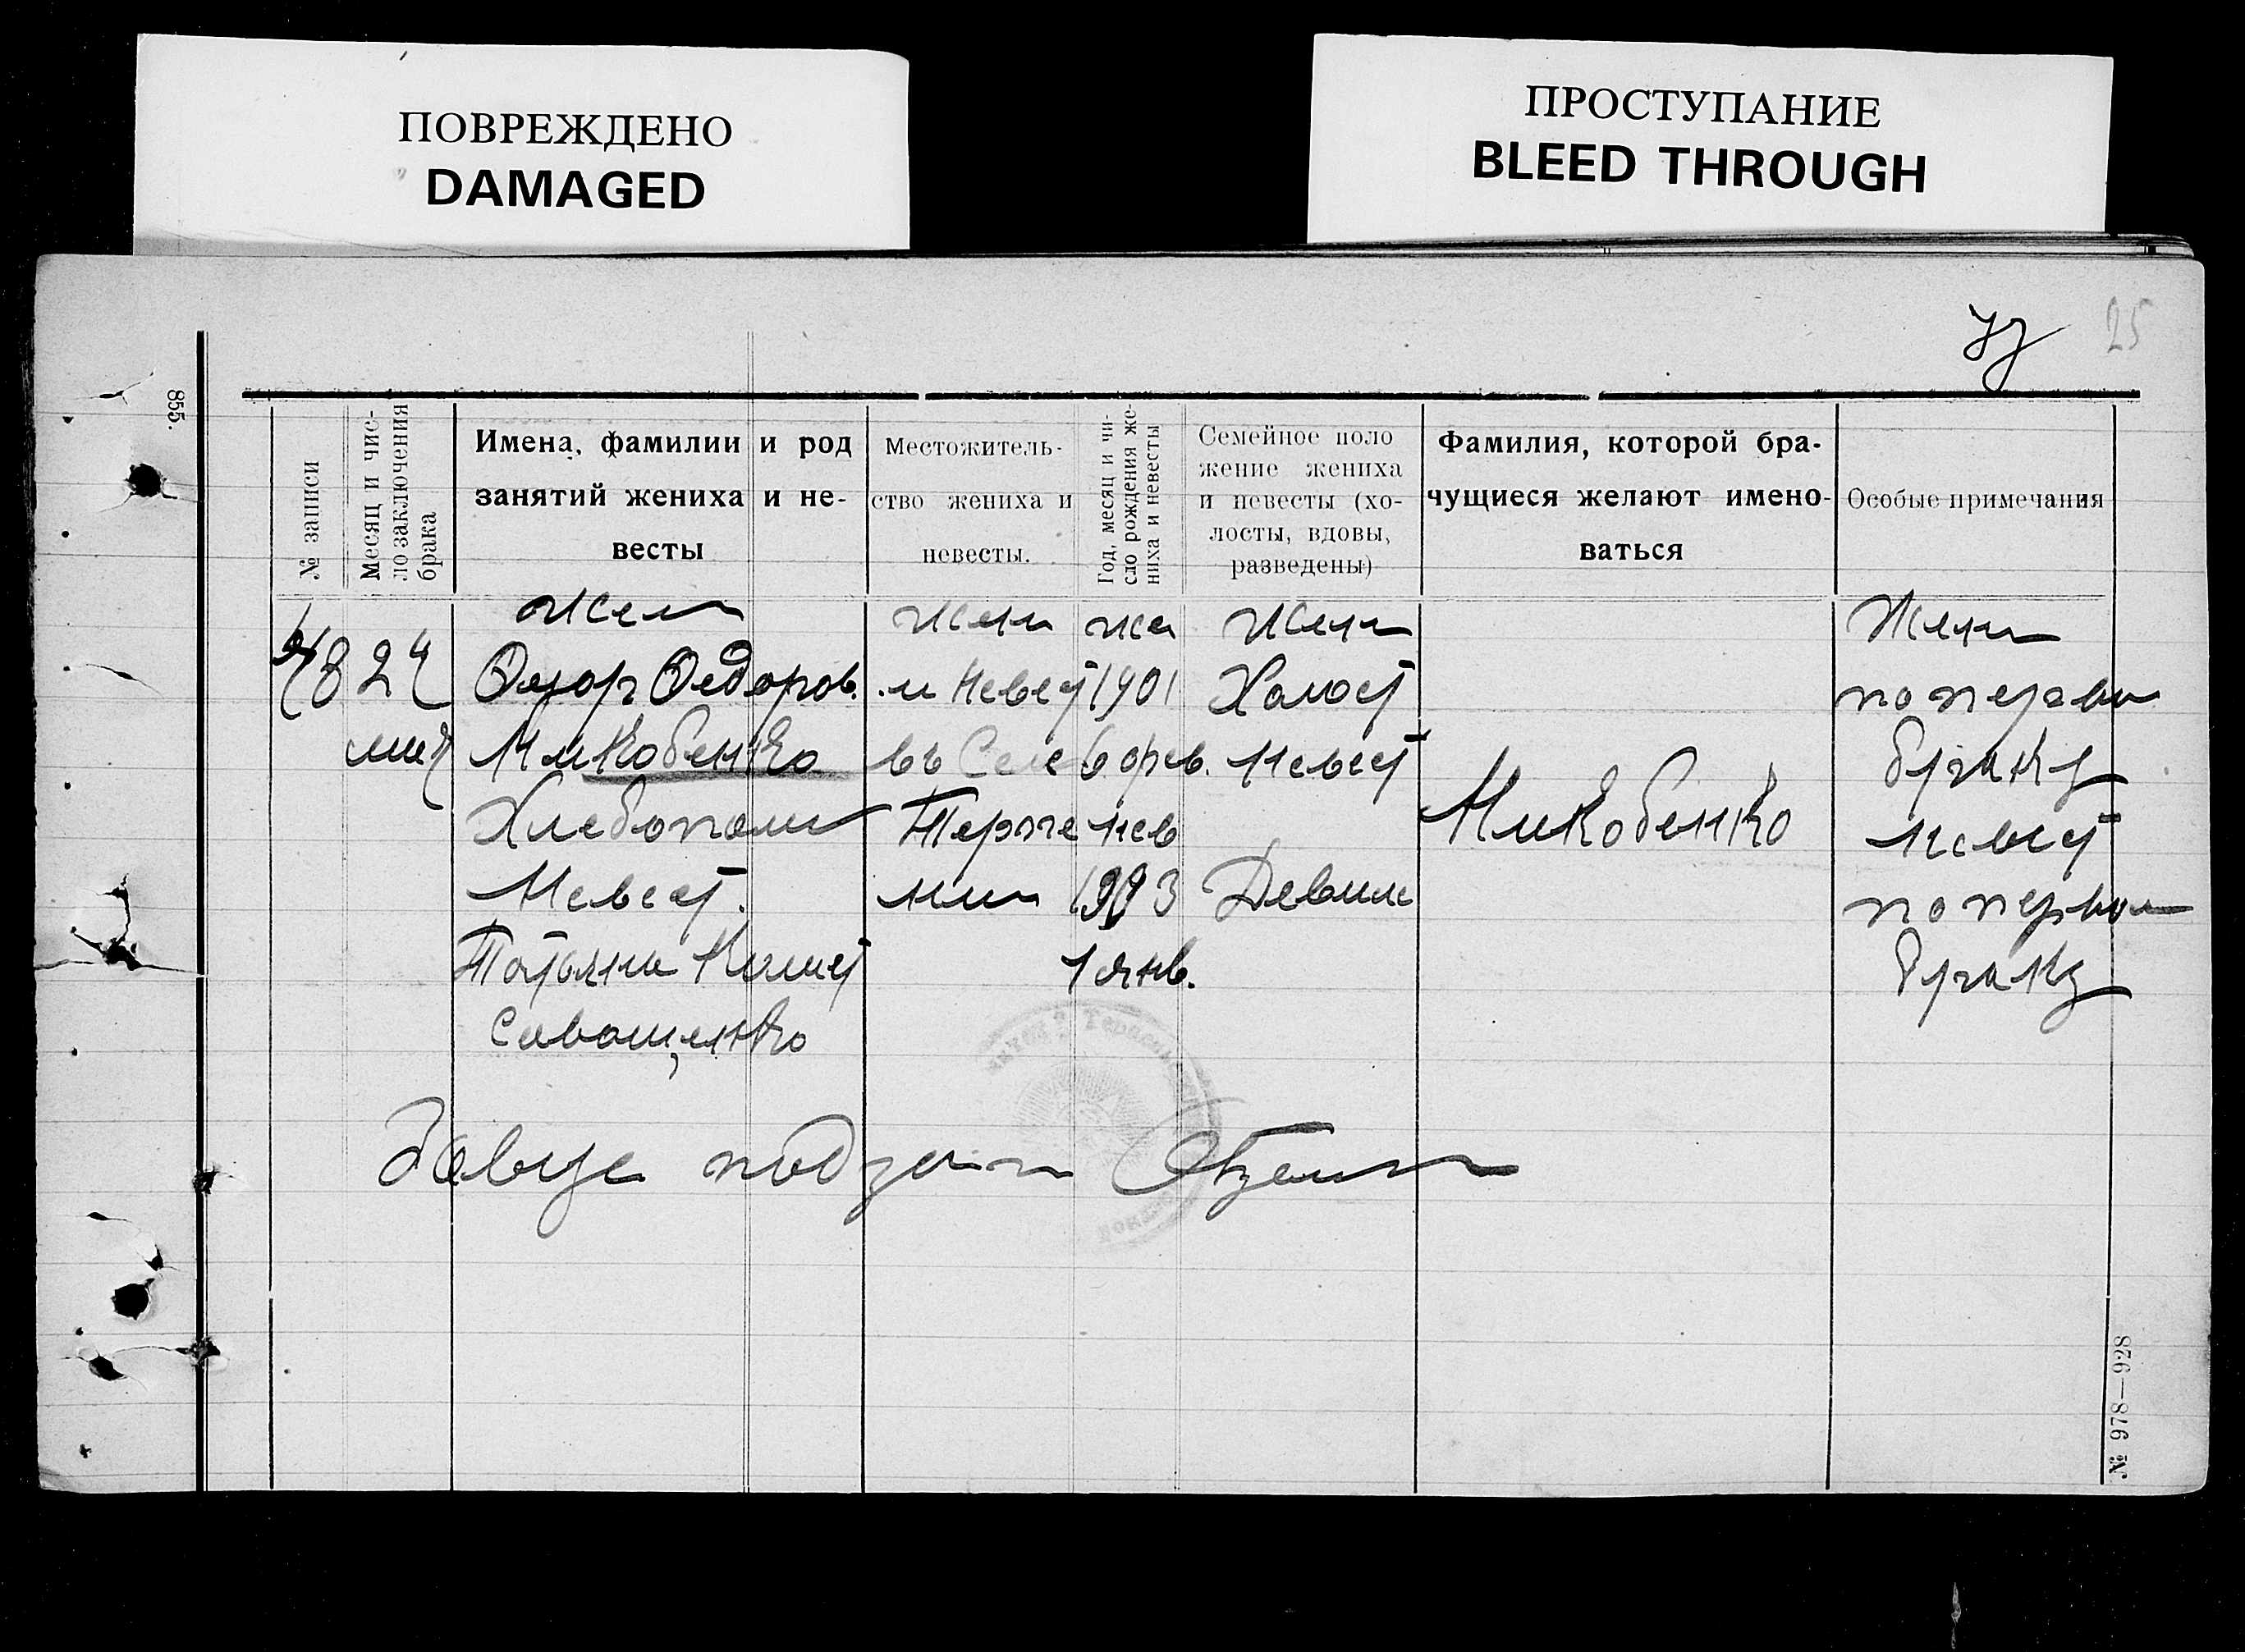 ПОВРЕЖДЕНО
DAMAGED
ПРОСТУПАНИЕ
BLEED THROUGH
25
855.
№ записи
Месяц и чис-
ло заключения
брака
Имена, фамилии и род
занятий жениха и не-
весты
Местожитель-
ство жениха и
невесты.
Год, месяц и чи-
сло рождения же-
ниха и невесты
Семейное поло
жение жениха
и невесты (хо-
лосты, вдовы,
разведены)
Фамилия, которой бра-
чущиеся желают имено-
ваться
Особые примечания
24
Федоров.
Никобенко
Хлебопаш
Невест.
Татьяна
Савощенко
и Невест
въ Селе
Терпе
нии
1901
6 фев.
нев
1903
1 янв.
Холост
Невест
Девиц
Никобенко
по перво
браку
невест
по первом
браку
№ 978—928